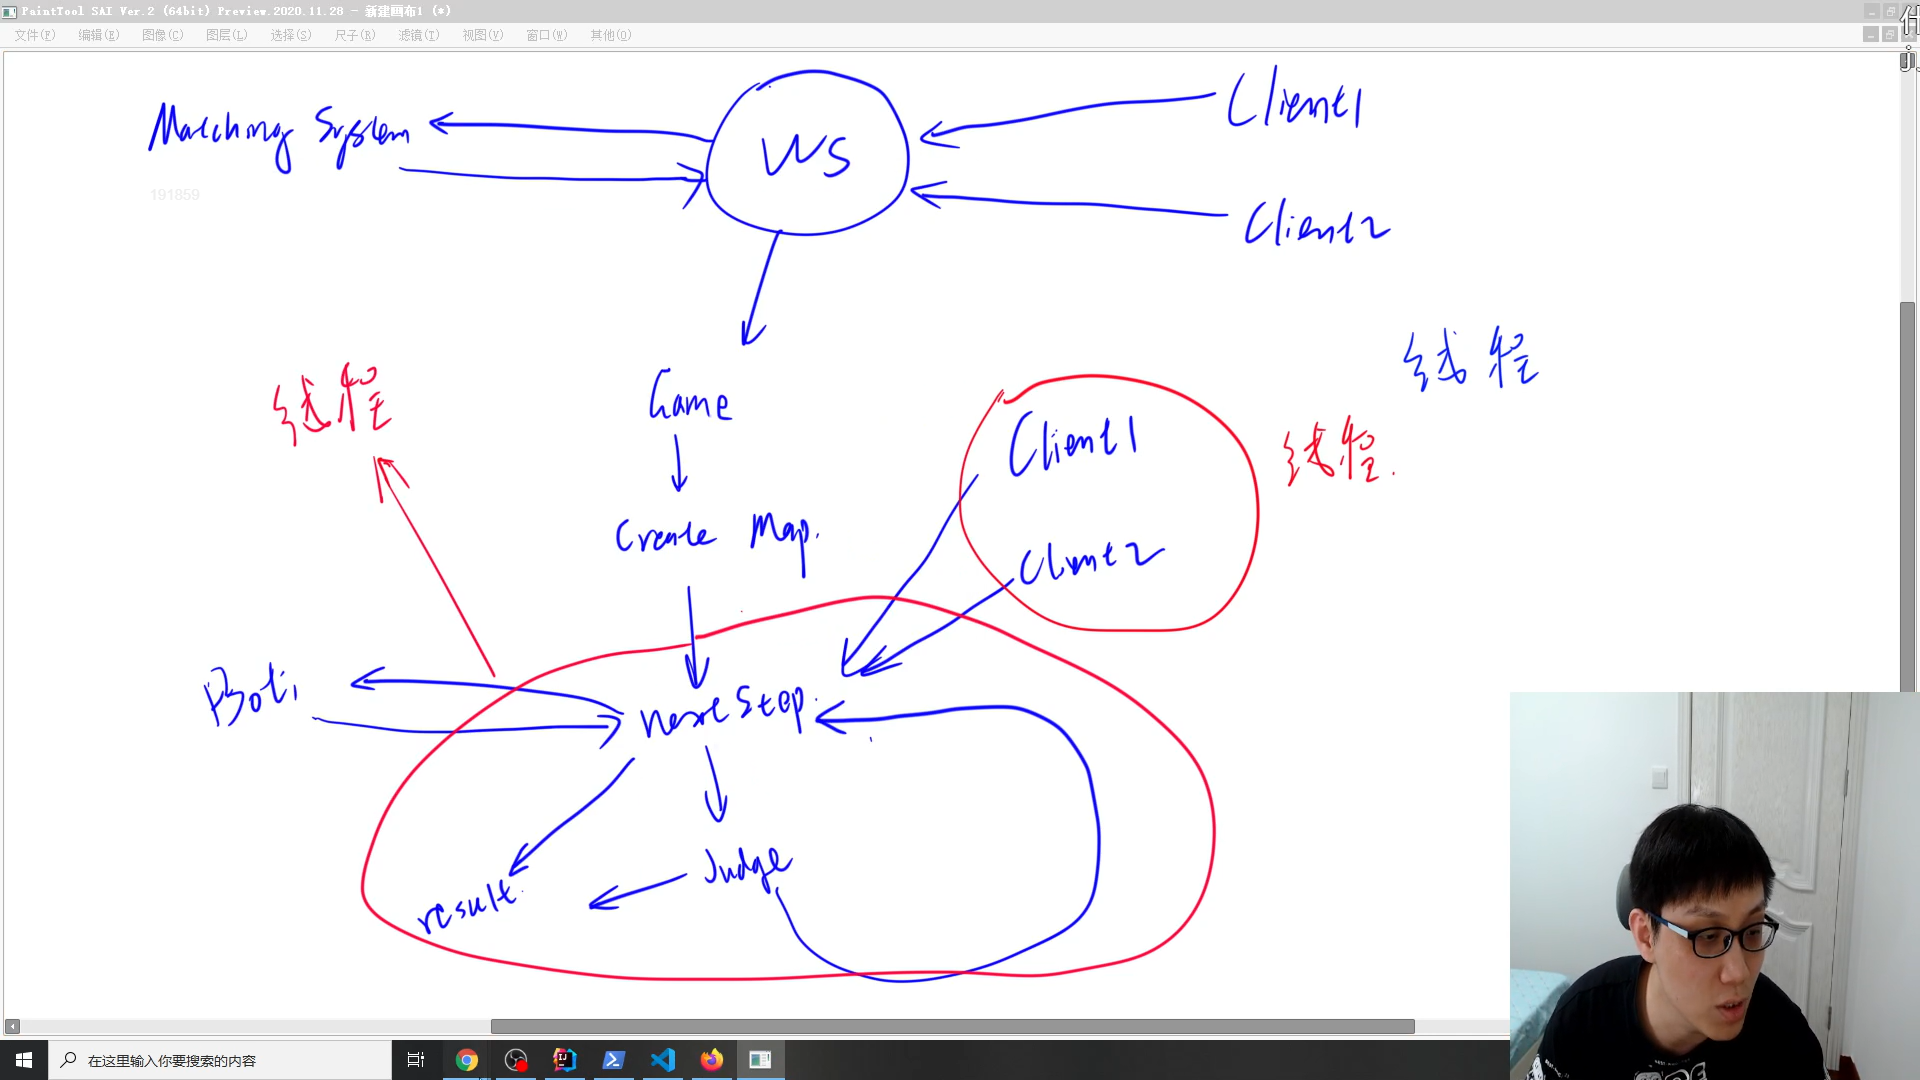 PaintTool SAI Ver.2 (64bit) Preview.2020.11.28 - 新建画布1 (*)
文件(F) 编辑(E) 图像(C) 图层(L) 选择(S) 尺子(R) 滤镜(T) 视图(V) 窗口(W) 其他(O)
Matching System
WS
Client1
191859
Client2
线程
线程
Game
Client1
线程.
Create Map.
Client2
Bot1
next Step.
Judge
result.
在这里输入你要搜索的内容